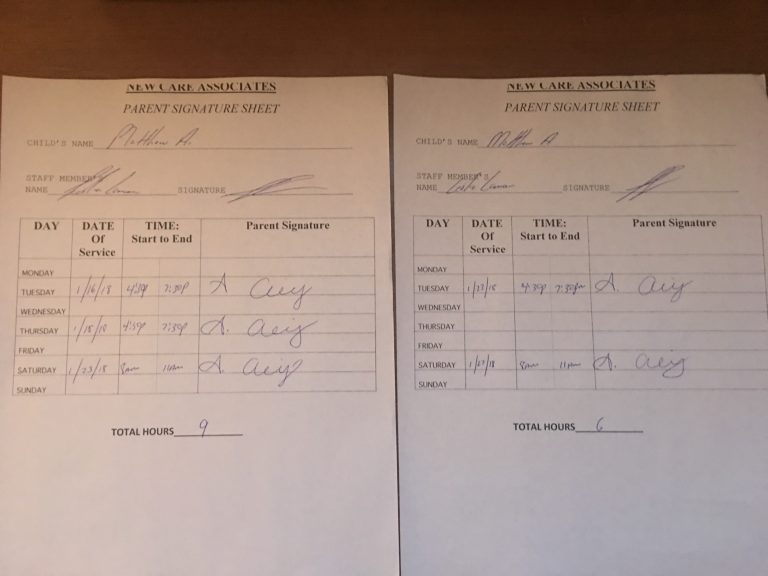 NEW CARE ASSOCIATES
PARENT SIGNATURE SHEET
CHILD'S NAME Matthew A.
STAFF MEMBER'S
NAME SIGNATURE
DAY DATE Of Service TIME: Start to End Parent Signature
MONDAY
TUESDAY 1/16/18 4:30p 7:30p A
WEDNESDAY
THURSDAY 1/18/18 4:30p 7:30p A.
FRIDAY
SATURDAY 8am 11am A.
SUNDAY
TOTAL HOURS 9
NEW CARE ASSOCIATES
PARENT SIGNATURE SHEET
CHILD'S NAME Matthew A
STAFF MEMBER'S
NAME SIGNATURE
DAY DATE Of Service TIME: Start to End Parent Signature
MONDAY
TUESDAY 1/23/18 4:30p 7:30pm A.
WEDNESDAY
THURSDAY
FRIDAY
SATURDAY 1/27/18 8am 11am A.
SUNDAY
TOTAL HOURS 6